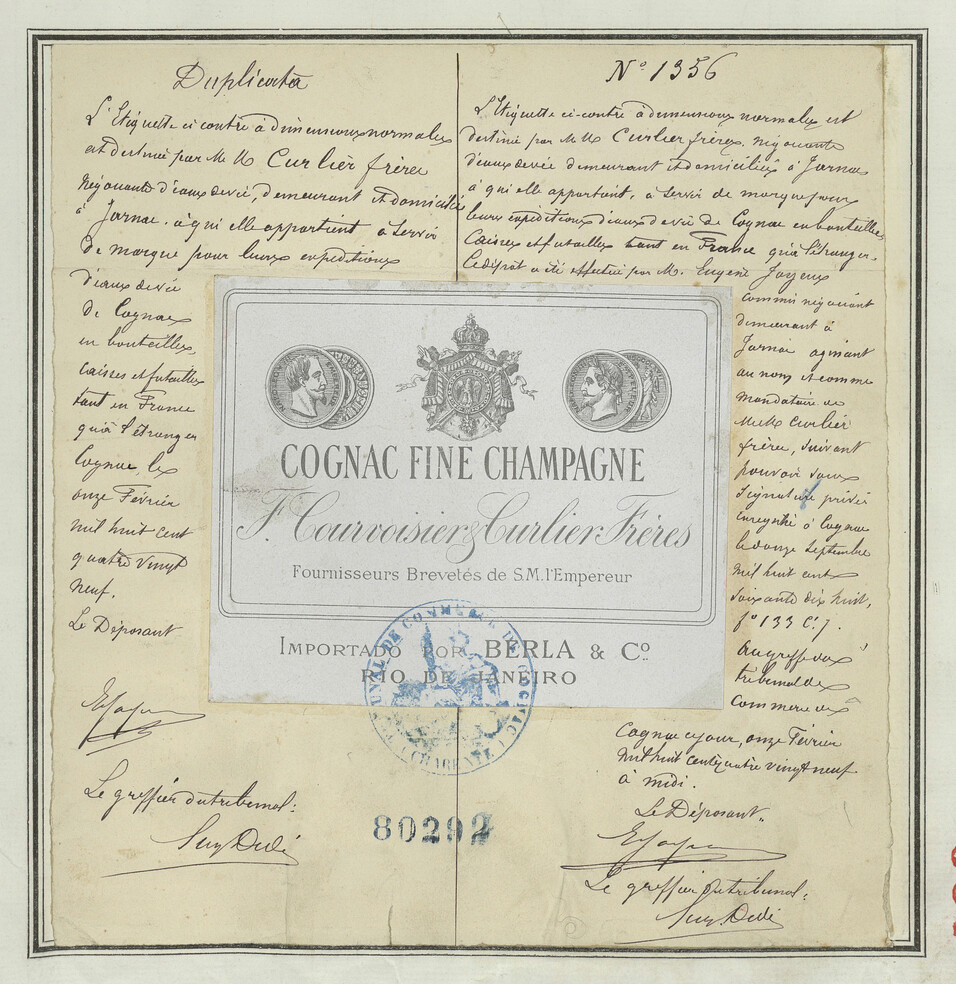 Duplicata
L'Etiquette ci contre à dimensions normales
est destinée par M M Curlier frères
Négociants d'eaux de vie, demeurant et domiciliés
à Jarnac, à qui elle appartient à servir
de marque pour leurs expéditions
d'eaux de vie
de Cognac
en bouteilles,
caisses et futailles
tant en France
qu'à l'étranger
Cognac le
onze Février
mil huit cent
quatre vingt
neuf.
Le Déposant
Le greffier du tribunal:
N° 1356
L'Etiquette ci-contre à dimensions normales est
destinée par M M Curlier frères, négociants
d'eaux de vie demeurant et domiciliés à Jarnac
à qui elle appartient, à servir de marque pour
leurs expéditions d'eaux de vie de Cognac en bouteilles
caisses et futailles tant en France qu'à l'étranger.
Le dépôt a été effectué par M. Eugène Joyeux
commis négociant
demeurant à
Jarnac agissant
au nom et comme
mandataire de
M M Curlier
frères, suivant
pouvoir sous
signature privée
enregistré à Cognac
le douze Septembre
mil huit cent
soixante dix huit,
f° 133 C. 7.
Au greffe du
tribunal de
commerce de
Cognac ce jour, onze Février
mil huit cent quatre vingt neuf
à midi.
Le Déposant.
Le greffier du tribunal:
COGNAC FINE CHAMPAGNE
F. Courvoisier & Curlier Frères
Fournisseurs Brevetés de S.M. l'Empereur
IMPORTADO POR BERLA & Co.
RIO DE JANEIRO
TRIBUNAL DE COMMERCE DE COGNAC
(CHARENTE)
80292